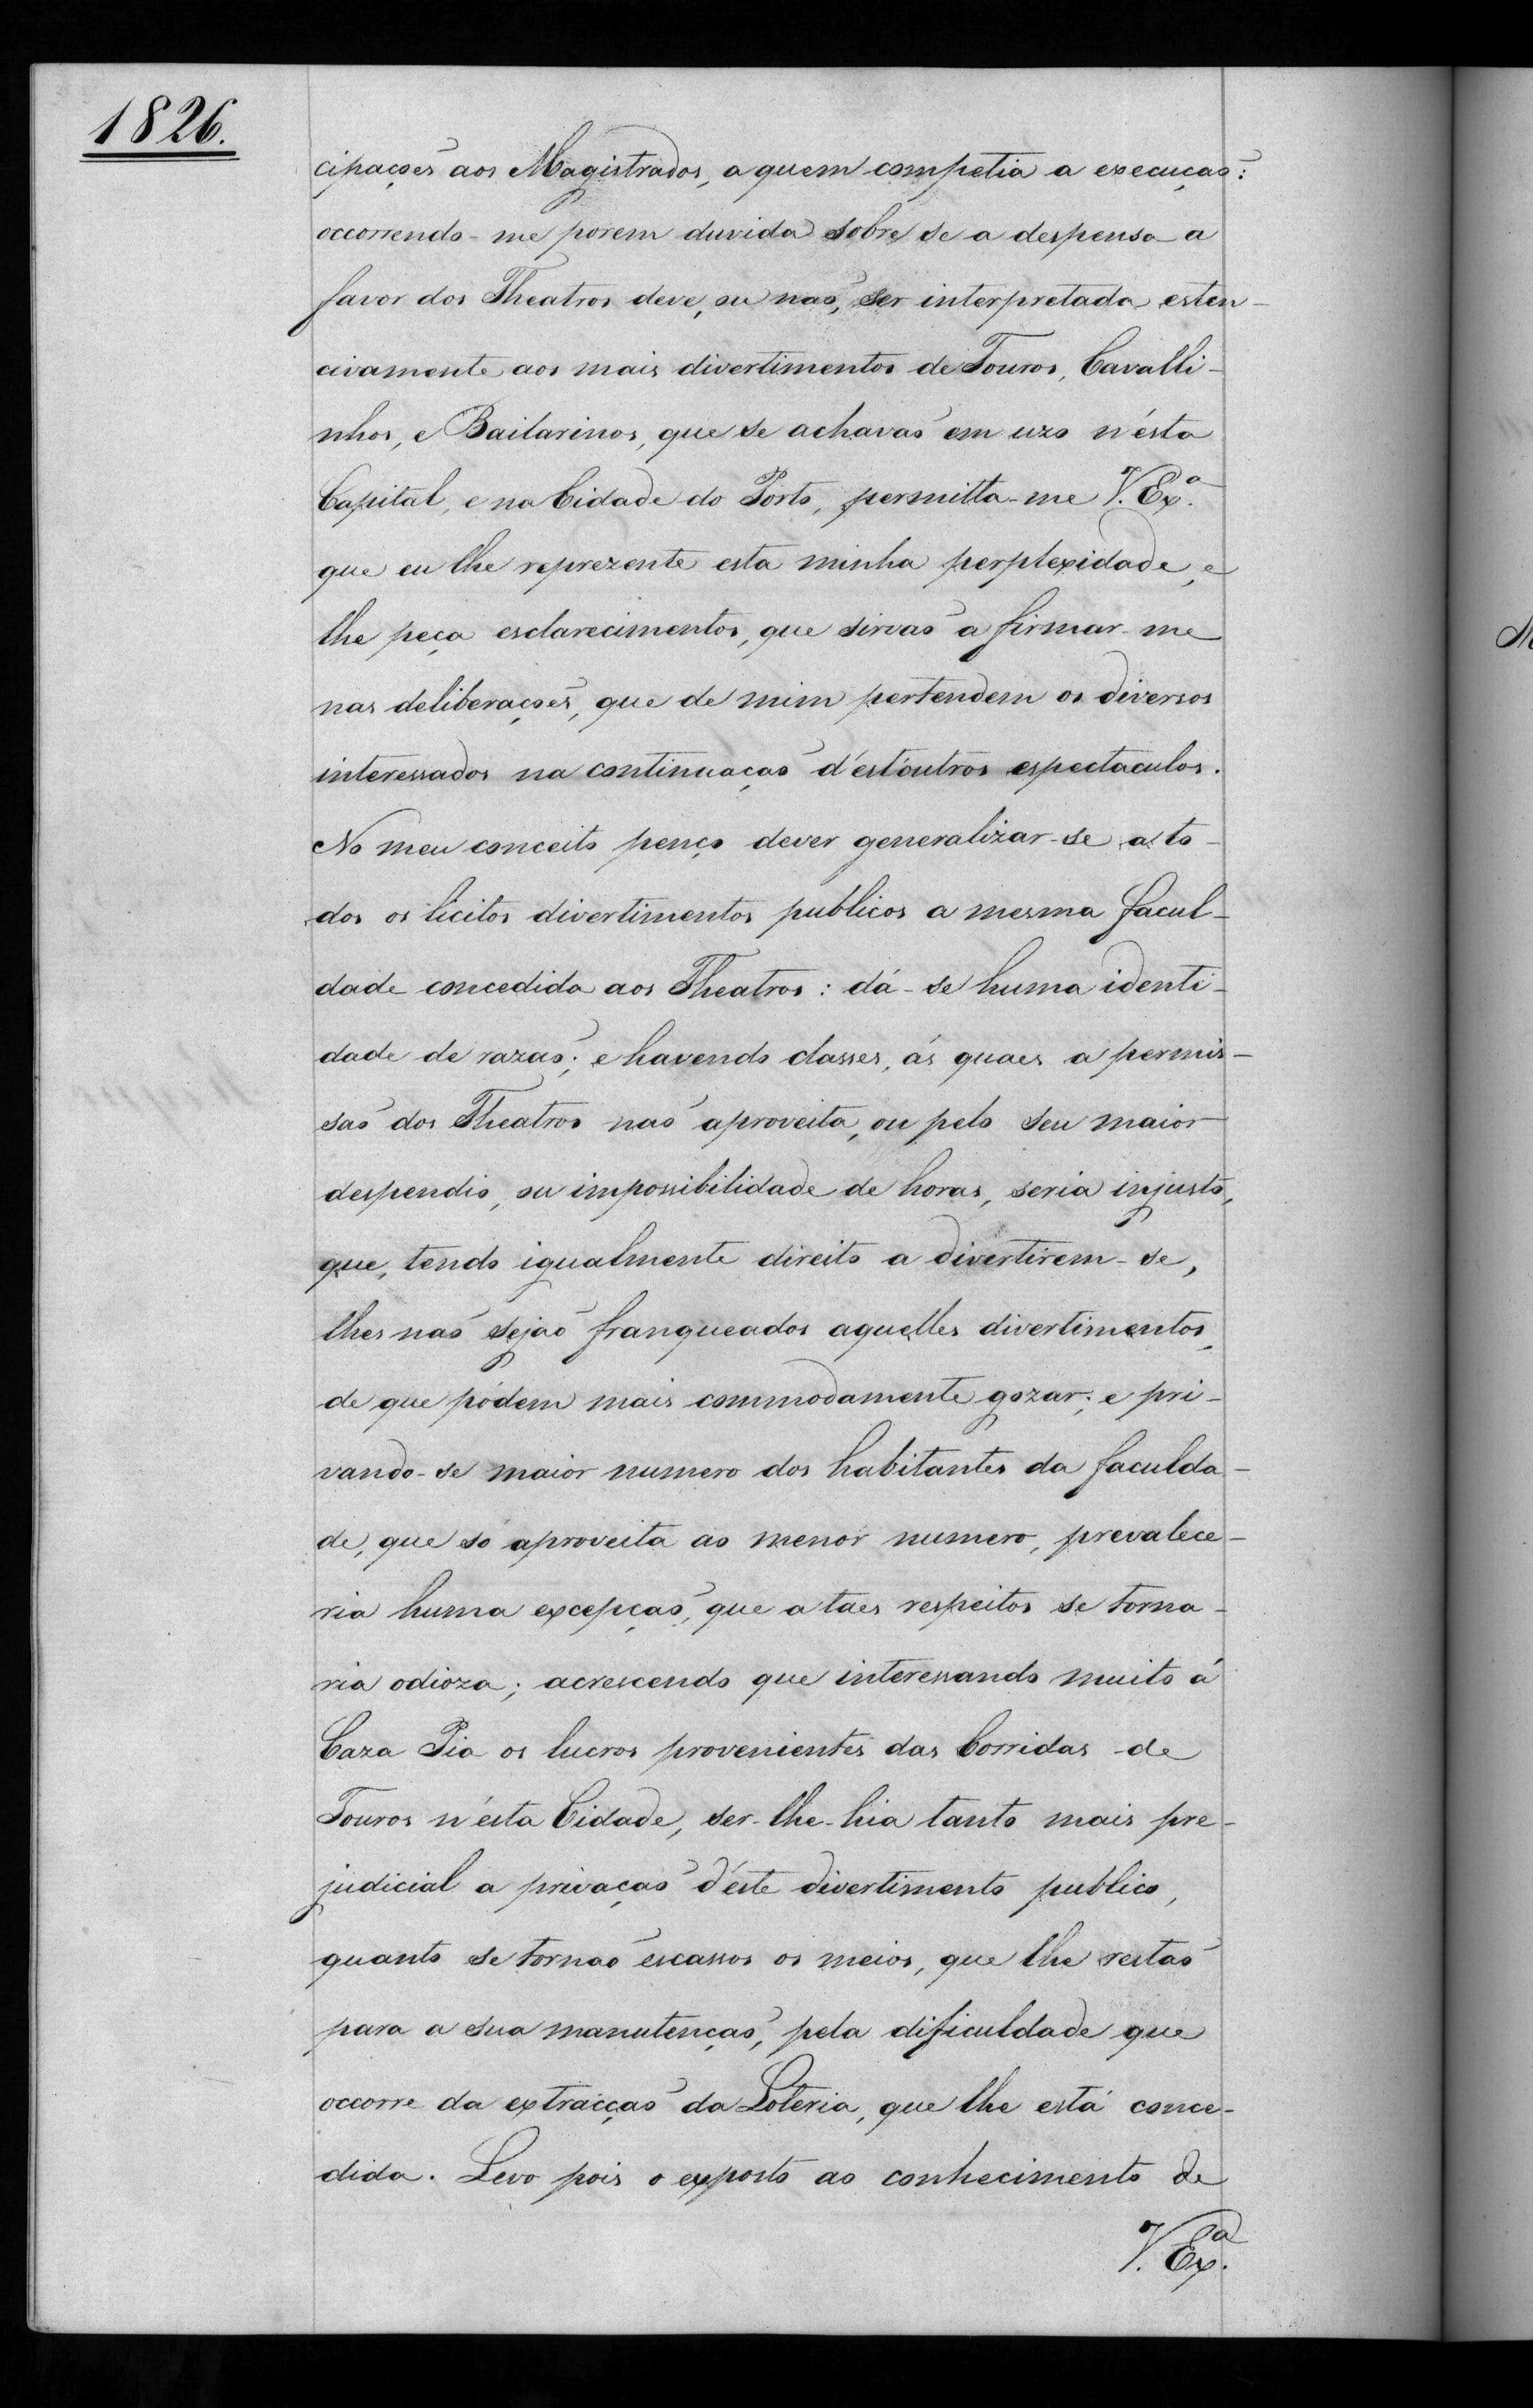 1826.
cipaçoẽs aos Magistrados, a quem competia a execuçaõ:
occorrendo-me porem duvida sobre se a despensa a
favor dos Theatros deve, ou naõ, ser interpretada esten-
civamente aos mais divertimentos de Touros, Cavalli-
nhos, e Bailarinos, que se achavaõ em uzo n'ésta
Capital, e na Cidade do Porto, permitta-me V. Ex.ª
que eu lhe reprezente esta minha perplexidade, e
lhe peça esclarecimentos, que sirvaõ a firmar-me
nas deliberaçoẽs, que de mim pertendem os diversos
interessados na continuaçaõ d'est'outros espectaculos.
No meu conceito penço dever generalizar-se a to-
dos os licitos divertimentos publicos a mesma facul-
dade concedida aos Theatros: dá-se huma identi-
dade de razaõ; e havendo classes, ás quaes a permis-
saõ dos Theatros naõ aproveita, ou pelo seu maior
despendio, ou impossibilidade de horas, seria injusto,
que, tendo igualmente direito a divertirem-se,
lhes naõ sejaõ franqueados aquelles divertimentos,
de que pódem mais commodamente gozar; e pri-
vando-se maior numero dos habitantes da faculda-
de, que só aproveita ao menor numero, prevalece-
ria huma excepçaõ, que a taes respeitos se torna-
ria odioza; acrescendo que interessando muito á
Caza Pia os lucros provenientes das Corridas de
Touros n'ésta Cidade, ser-lhe-hia tanto mais pre-
judicial a privaçaõ d'éste divertimento publico,
quanto se tornaõ escassos os meios, que lhe restaõ
para a sua manutençaõ, pela dificuldade que
occorre da extracçaõ da Loteria, que lhe está conce-
dida. Levo pois o exposto ao conhecimento de
V. Ex.ª